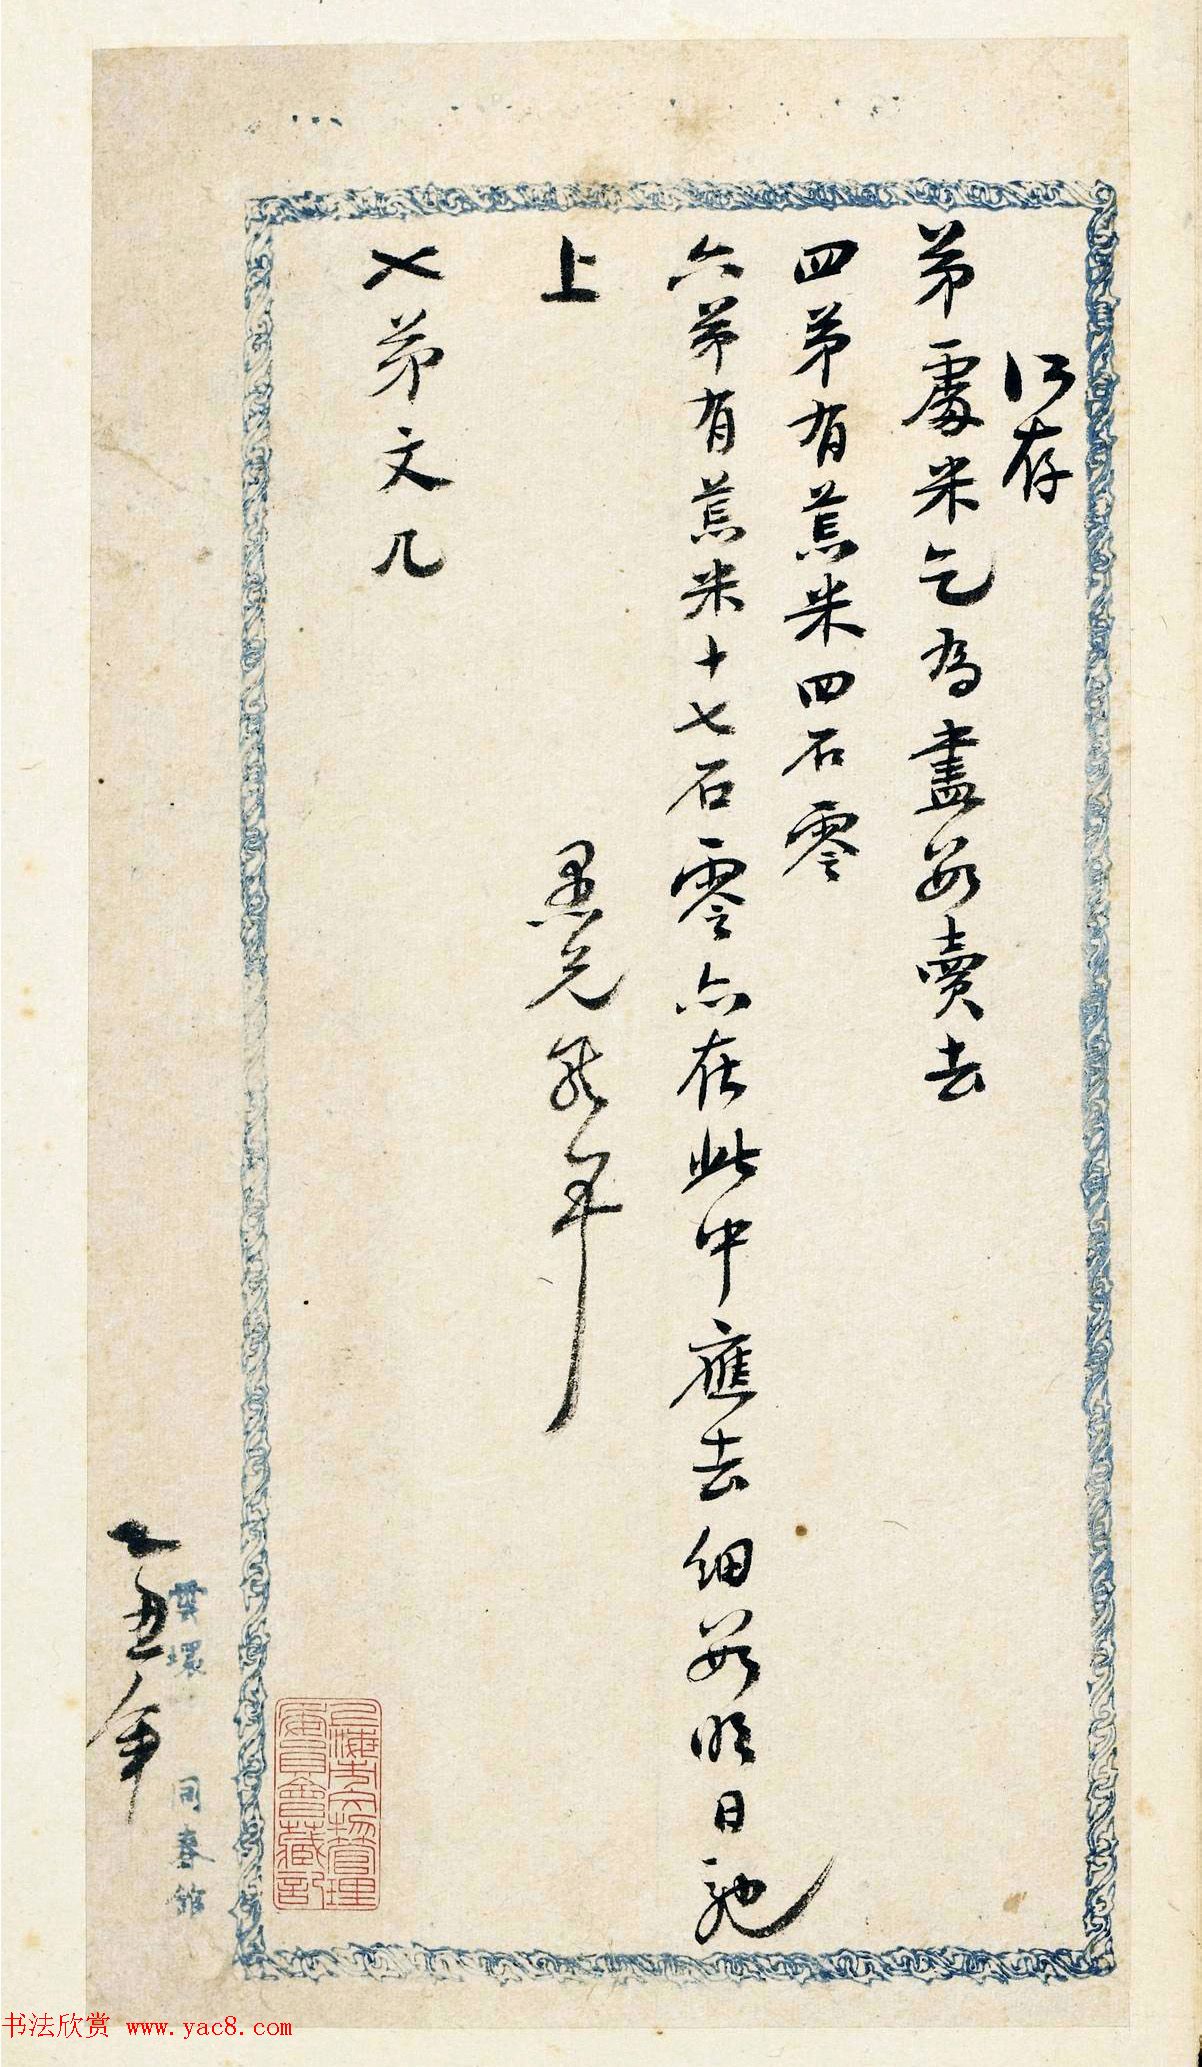 所存
弟處米乞為盡數賣去
四弟有蒸米四石零
六弟有蒸米十七石零亦在此中應去細數明日馳
上
愚兄年
弟文几
乙丑年
同春館
上海市文物管理
委員會藏記
书法欣赏 www.yac8.com